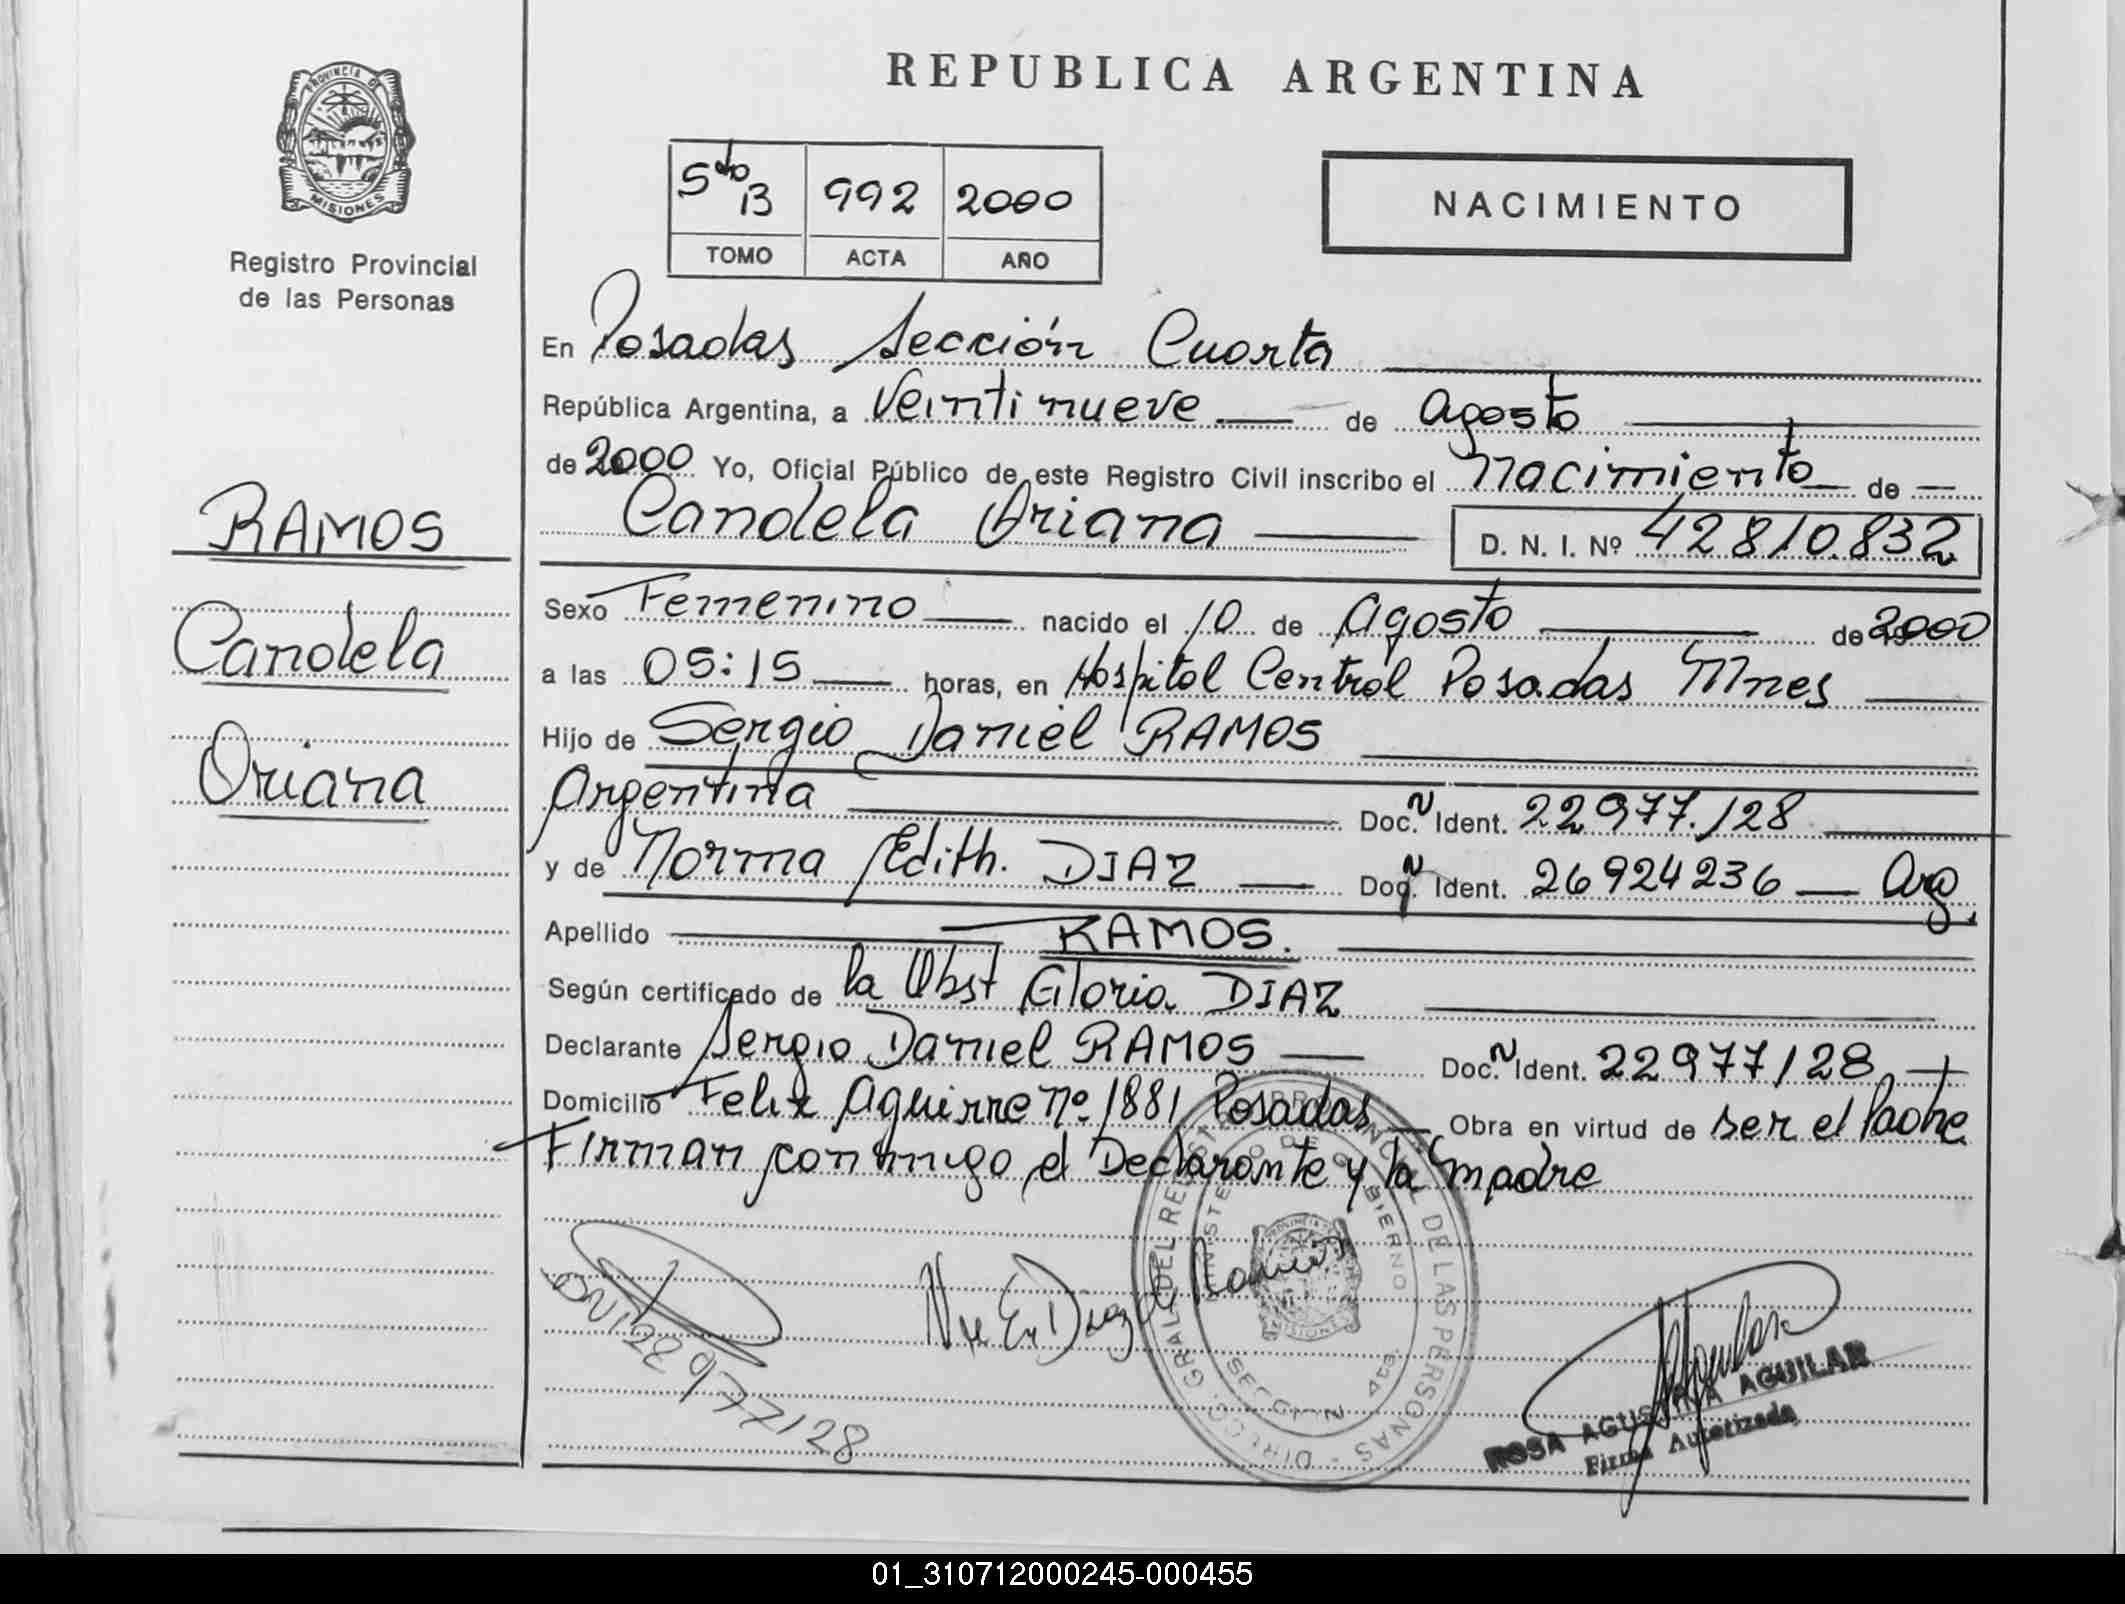 PROVINCIA DE
MISIONES
Registro Provincial
de las Personas
RAMOS
Candela
Oriana
REPUBLICA ARGENTINA
5to B 992 2000
TOMO ACTA AÑO
NACIMIENTO
En Posadas Sección Cuarta
República Argentina, a Veintinueve de Agosto
de 2000 Yo, Oficial Público de este Registro Civil inscribo el Nacimiento de
Candela Oriana D. N. I. Nº 42810.832
Sexo Femenino nacido el 10 de Agosto de 2000
a las 05:15 horas, en Hospital Central Posadas Mnes
Hijo de Sergio Daniel RAMOS
Argentina Doc. N Ident. 22977.128
y de Norma Edith. DIAZ Doc. N Ident. 26924236 Arg.
Apellido RAMOS.
Según certificado de la Obst Gloria DIAZ
Declarante Sergio Daniel RAMOS Doc. N Ident. 22977128
Domicilio Felix Aguirre nº 1881 Posadas Obra en virtud de ser el Padre
Firman conmigo el Declarante y la madre
DNI 22977128
DIRECC. GRAL. DEL REGISTRO PROVINCIAL DE LAS PERSONAS
MINISTERIO DE GOBIERNO
SECCION 4ta.
PROVINCIA DE
MISIONES
ROSA AGUSTINA AGUILAR
Firma Autorizada
01_310712000245-000455